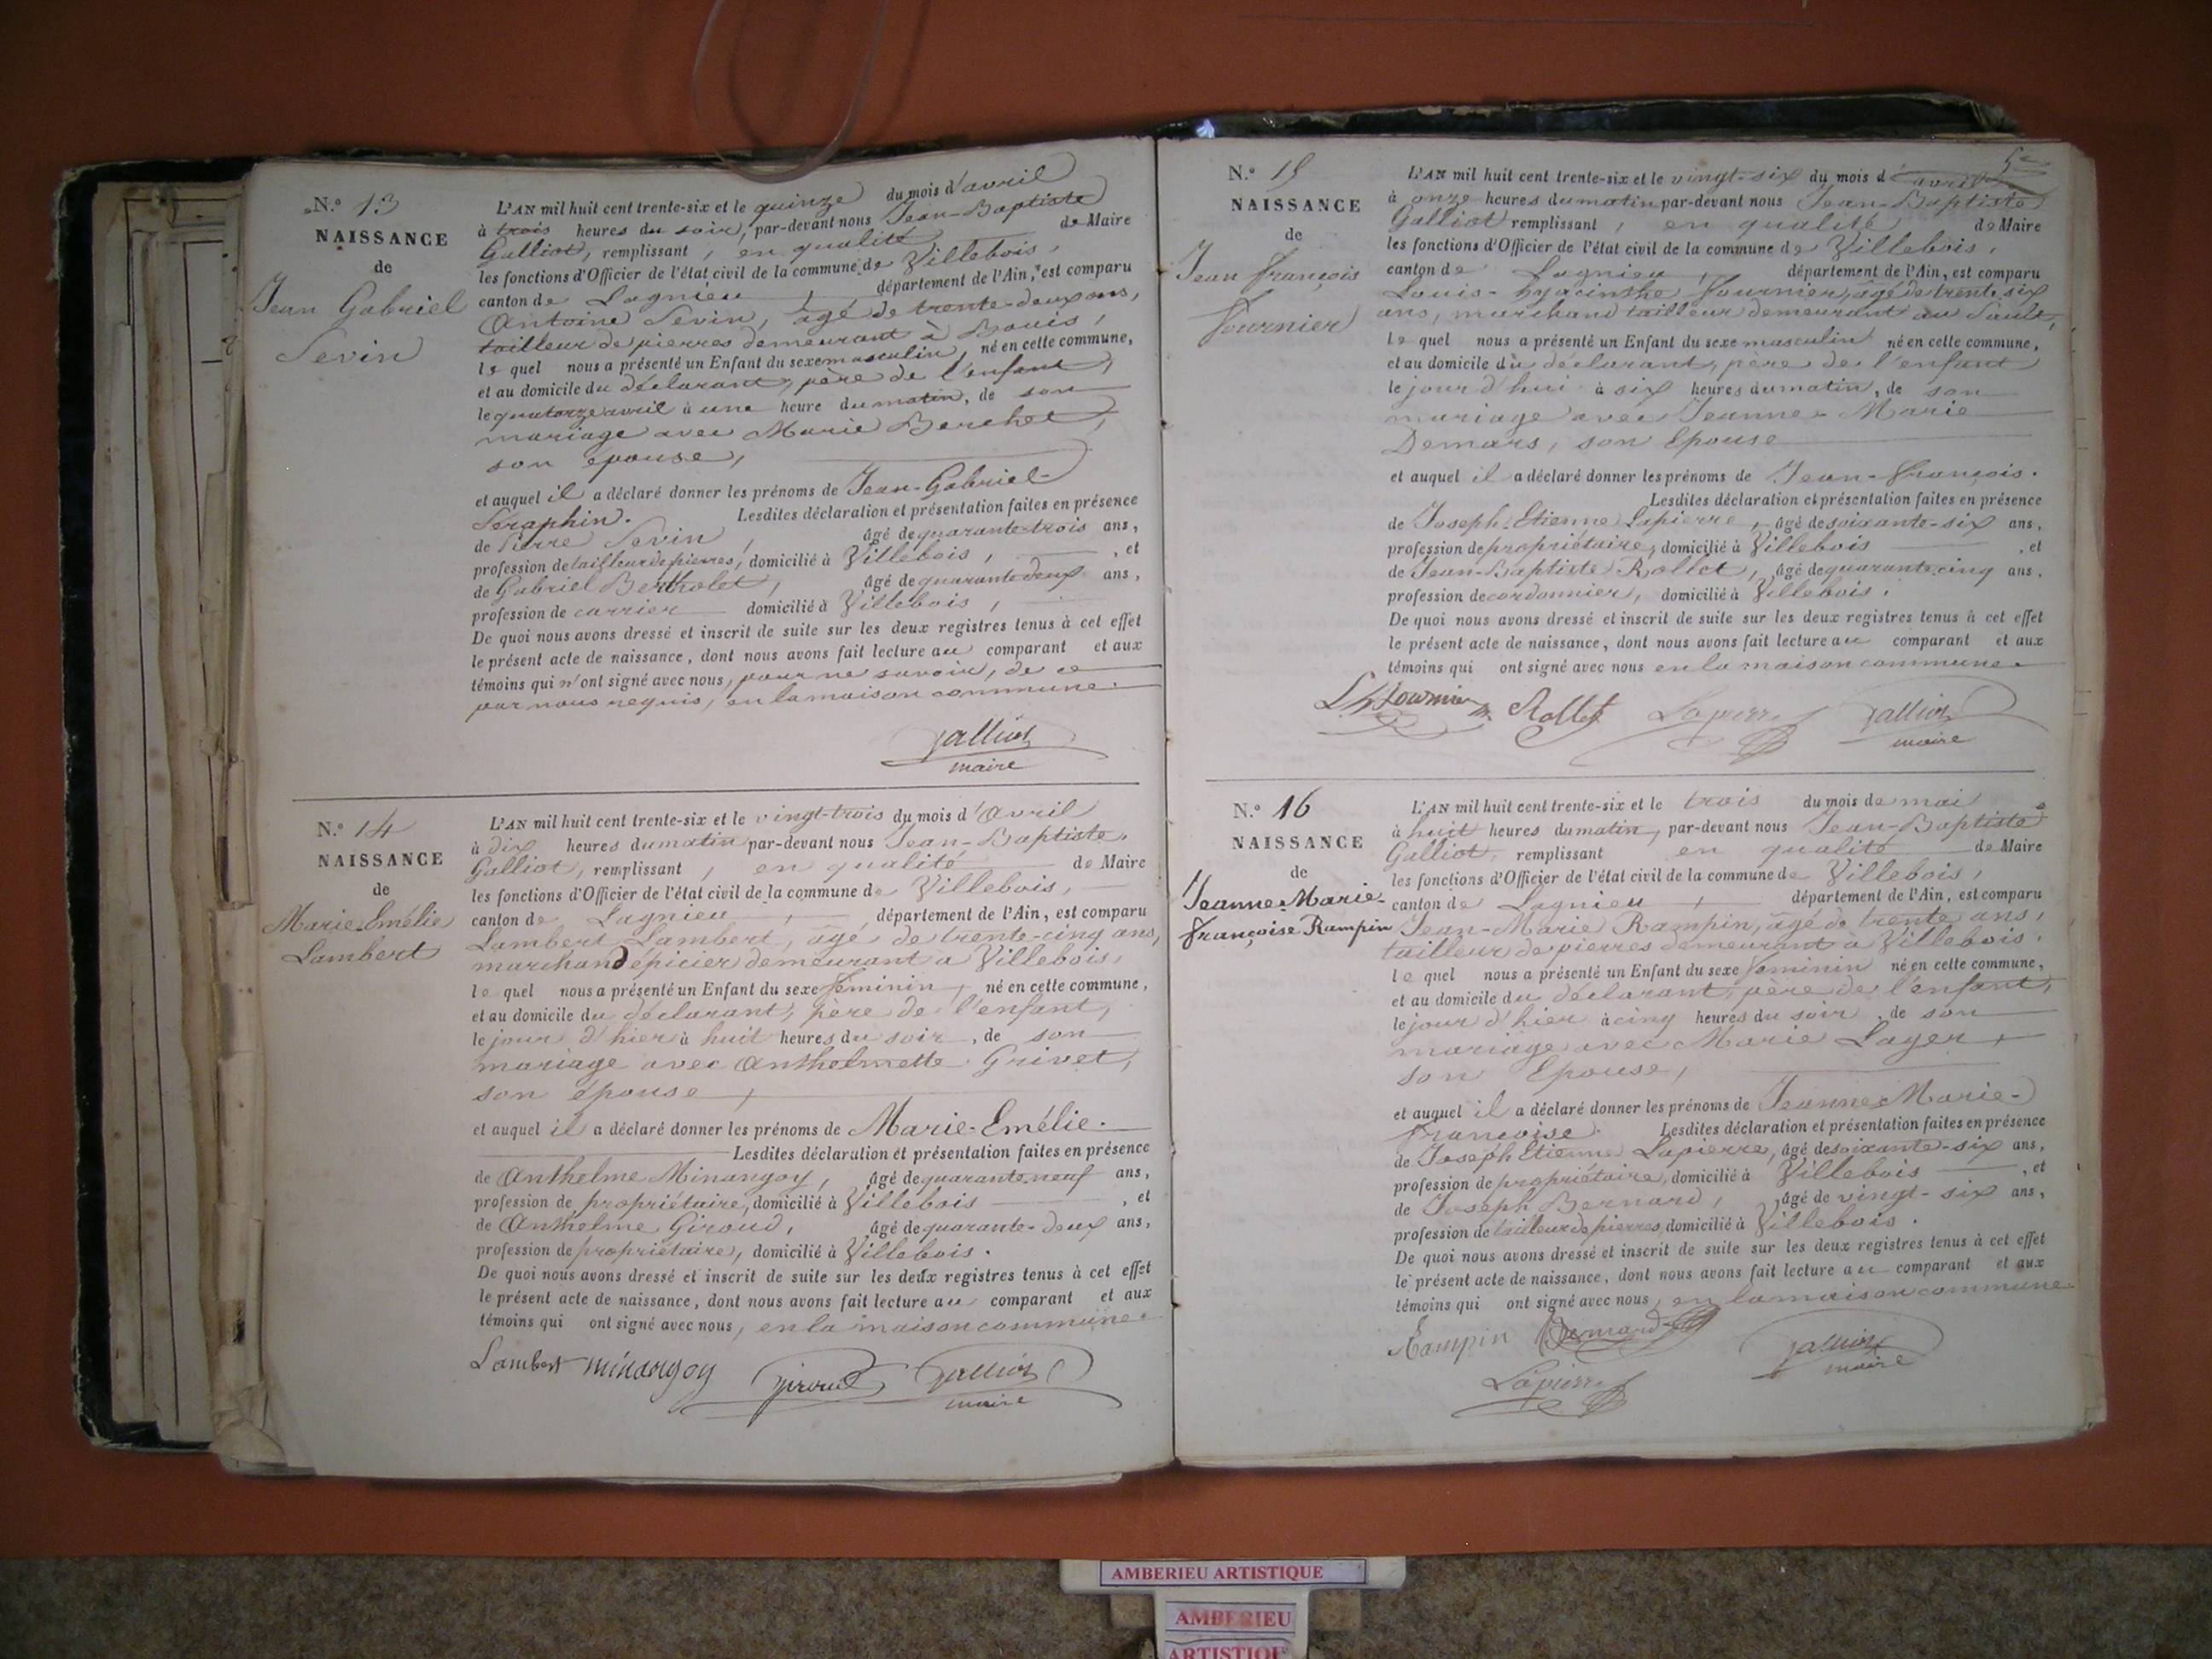 N.º 13
NAISSANCE
de
Jean Gabriel
Sevin
L'AN mil huit cent trente-six et le quinze du mois d'avril
à trois heures du soir, par-devant nous Jean-Baptiste
Galliot, remplissant, en qualité de Maire
les fonctions d'Officier de l'état civil de la commune de Villebois,
canton de Lagnieu, département de l'Ain, est comparu
Antoine Sevin, âgé de trente-deux ans,
tailleur de pierres demeurant à Bouis,
lequel nous a présenté un Enfant du sexe masculin, né en cette commune,
et au domicile du déclarant, père de l'enfant,
le quatorze avril à une heure du matin, de son
mariage avec Marie Berchet,
son épouse,
et auquel il a déclaré donner les prénoms de Jean-Gabriel-
Séraphin. Lesdites déclaration et présentation faites en présence
de Pierre Sevin, âgé de quarante-trois ans,
profession de tailleur de pierres, domicilié à Villebois, et
de Gabriel Bertholet, âgé de quarante deux ans,
profession de carrier domicilié à Villebois,
De quoi nous avons dressé et inscrit de suite sur les deux registres tenus à cet effet
le présent acte de naissance, dont nous avons fait lecture au comparant et aux
témoins qui n'ont signé avec nous, pour ne savoir, de ce
par nous requis, en la maison commune.
Galliot
maire
N.º 14
NAISSANCE
de
Marie Emélie
Lambert
L'AN mil huit cent trente-six et le vingt-trois du mois d'Avril
à dix heures du matin par-devant nous Jean-Baptiste
Galliot, remplissant, en qualité de Maire
les fonctions d'Officier de l'état civil de la commune de Villebois,
canton de Lagnieu, département de l'Ain, est comparu
Lambert Lambert, âgé de trente-cinq ans,
marchand épicier demeurant a Villebois,
lequel nous a présenté un Enfant du sexe féminin, né en cette commune,
et au domicile du déclarant, père de l'enfant,
le jour d'hier à huit heures du soir, de son
mariage avec Anthelmette Grivet,
son épouse,
et auquel il a déclaré donner les prénoms de Marie-Emélie.
Lesdites déclaration et présentation faites en présence
de Anthelme Minangoy, âgé de quarante neuf ans,
profession de propriétaire, domicilié à Villebois, et
de Anthelme Giroud, âgé de quarante-deux ans,
profession de propriétaire, domicilié à Villebois.
De quoi nous avons dressé et inscrit de suite sur les deux registres tenus à cet effet
le présent acte de naissance, dont nous avons fait lecture au comparant et aux
témoins qui ont signé avec nous, en la maison commune.
Lambert minangoy Giroud Galliot
maire
5e
N.º 15
NAISSANCE
de
Jean François
Fournier
L'AN mil huit cent trente-six et le vingt-six du mois d'avril
à onze heures du matin par-devant nous Jean-Baptiste
Galliot remplissant, en qualité de Maire
les fonctions d'Officier de l'état civil de la commune de Villebois,
canton de Lagnieu, département de l'Ain, est comparu
Louis-hyacinthe Fournier, âgé de trente six
ans, marchand tailleur demeurant au Sault,
lequel nous a présenté un Enfant du sexe masculin né en cette commune,
et au domicile du déclarant, père de l'enfant
le jour d'hui à six heures du matin, de son
mariage avec Jeanne-Marie
Demars, son Epouse
et auquel il a déclaré donner les prénoms de Jean-François.
Lesdites déclaration et présentation faites en présence
de Joseph-Etienne Lapierre, âgé de soixante-six ans,
profession de propriétaire, domicilié à Villebois, et
de Jean-Baptiste Rollet, âgé de quarante cinq ans,
profession de cordonnier, domicilié à Villebois.
De quoi nous avons dressé et inscrit de suite sur les deux registres tenus à cet effet
le présent acte de naissance, dont nous avons fait lecture au comparant et aux
témoins qui ont signé avec nous en la maison commune.
Lh fournier Rollet Lapierre Galliot
maire
N.º 16
NAISSANCE
de
Jeanne-Marie-
Françoise Rampin
L'AN mil huit cent trente-six et le trois du mois de mai
à huit heures du matin, par-devant nous Jean-Baptiste
Galliot, remplissant en qualité de Maire
les fonctions d'Officier de l'état civil de la commune de Villebois,
canton de Lagnieu, département de l'Ain, est comparu
Jean-Marie Rampin, âgé de trente ans,
tailleur de pierres demeurant à Villebois.
lequel nous a présenté un Enfant du sexe féminin né en cette commune,
et au domicile du déclarant, père de l'enfant,
le jour d'hier à cinq heures du soir, de son
mariage avec Marie Lager,
son Epouse,
et auquel il a déclaré donner les prénoms de Jeanne-Marie-
Françoise. Lesdites déclaration et présentation faites en présence
de Joseph Etienne Lapierre, âgé de soixante-six ans,
profession de propriétaire, domicilié à Villebois, et
de Joseph Bernard, âgé de vingt-six ans,
profession de tailleur de pierres, domicilié à Villebois.
De quoi nous avons dressé et inscrit de suite sur les deux registres tenus à cet effet
le présent acte de naissance, dont nous avons fait lecture au comparant et aux
témoins qui ont signé avec nous, en la maison commune
Rampin Bernard Galliot
maire
Lapierre
AMBERIEU ARTISTIQUE
AMBERIEU
ARTISTIQUE